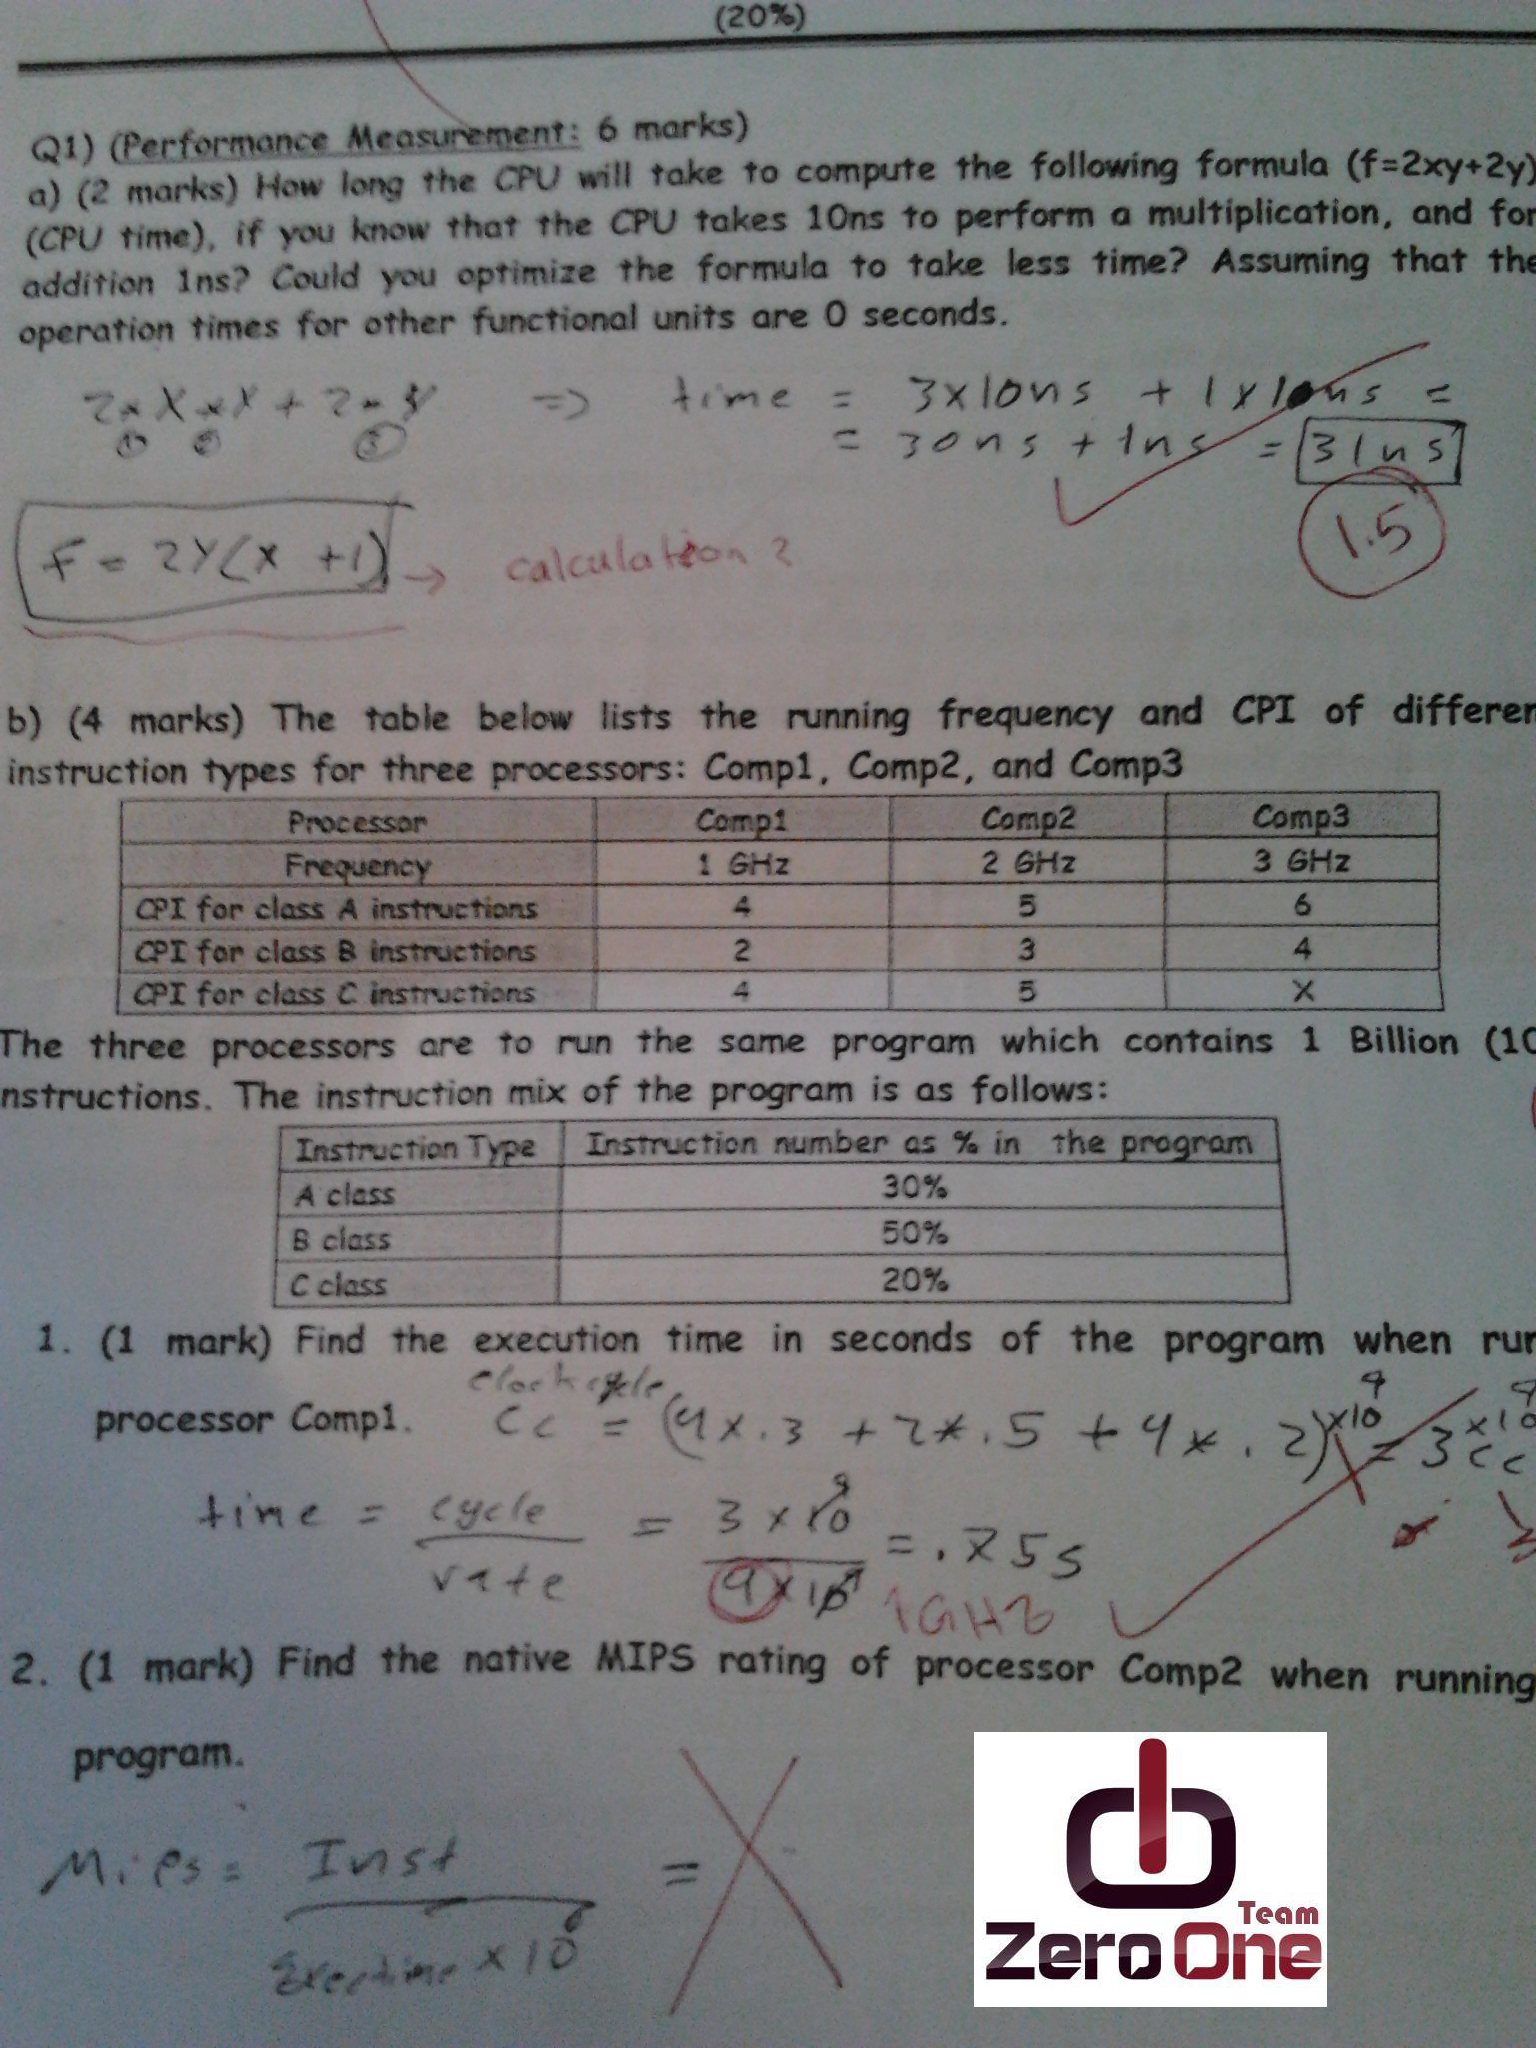 (20%)
Q1) (Performance Measurement: 6 marks)
a) (2 marks) How long the CPU will take to compute the following formula (f=2xy+2y)
(CPU time), if you know that the CPU takes 10ns to perform a multiplication, and for
addition 1ns? Could you optimize the formula to take less time? Assuming that the
operation times for other functional units are 0 seconds.
=> time = 3x10ns + 1x1ns =
= 30ns + 1ns = 31ns
1.5
F = 2Y(X +1) → calculation ?
b) (4 marks) The table below lists the running frequency and CPI of differen
instruction types for three processors: Comp1, Comp2, and Comp3
Processor Comp1 Comp2 Comp3
Frequency 1 GHz 2 GHz 3 GHz
CPI for class A instructions 4 5 6
CPI for class B instructions 2 3 4
CPI for class C instructions 4 5 X
The three processors are to run the same program which contains 1 Billion (10
nstructions. The instruction mix of the program is as follows:
Instruction Type Instruction number as % in the program
A class 30%
B class 50%
C class 20%
1. (1 mark) Find the execution time in seconds of the program when run
clock cycle
processor Comp1. Cc = (4x.3 + 2x.5 + 4x.2)x10^9 = 3x10^9 cc
time = cycle / rate = 3 x 10^9 / 4 x 10^9 = .75s
1GHz
2. (1 mark) Find the native MIPS rating of processor Comp2 when running
program.
Mips = Inst / Exec time x 10^6 =
Team
Zero One